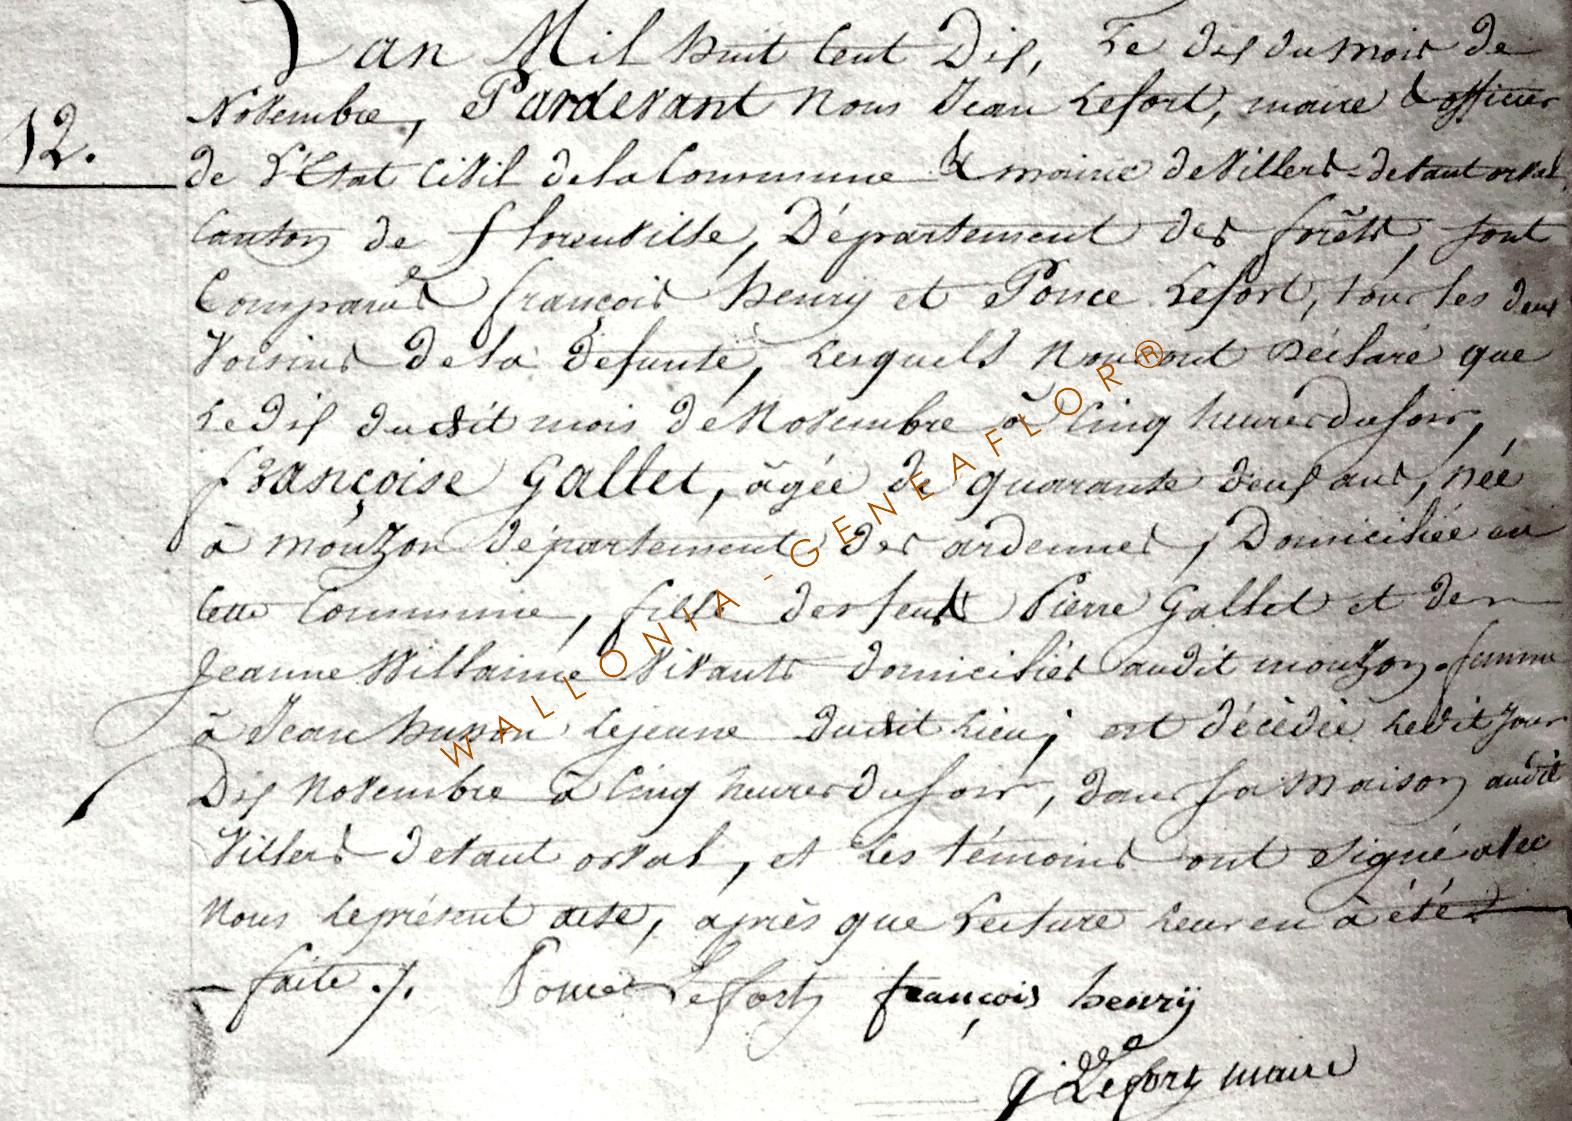 L'an Mil huit Cent Dix, Le dix du mois de
12.
Novembre, Pardevant nous Jean Lefort, maire & officier
de L'Etat Civil de la Commune & mairie de Villers-devant orval
Canton de florenville, Département des forêts, sont
Comparus françois henry et Ponce Lefort, tous les deux
Voisins de la défunte, Lesquels nous ont Déclaré que
Le dix dudit mois de Novembre à Cinq heures du soir,
françoise Gallet, âgée de quarante deux ans, née
à mouzon département des ardennes, Domiciliée en
Cette Commune, fille des feus Pierre Gallet et de
Jeanne Willaime Vivants domiciliés audit mouzon, femme
à Jean husson Lejeune dudit Lieu; est décèdée Ledit jour
Dix Novembre à Cinq heures du soir, dans sa Maison audit
Villers devant orval, et Les témoins ont signé avec
Nous le présent acte, après que Lecture Leur en à été
faite ./. Ponce Lefort françois henrÿ
J Lefort maire
WALLONIA-GENEAFLOR®